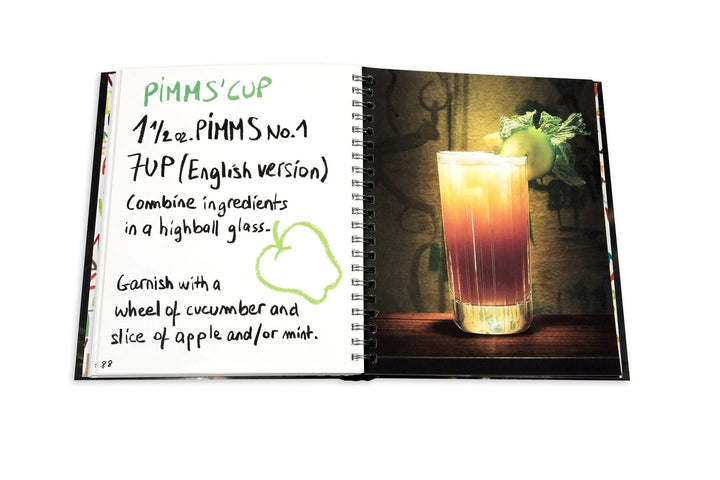 PiMMS'CUP
1 1/2 oz. PiMMS No.1
7UP (English version)
Combine ingredients
in a highball glass.
Garnish with a
wheel of cucumber and
slice of apple and/or mint.
: 88